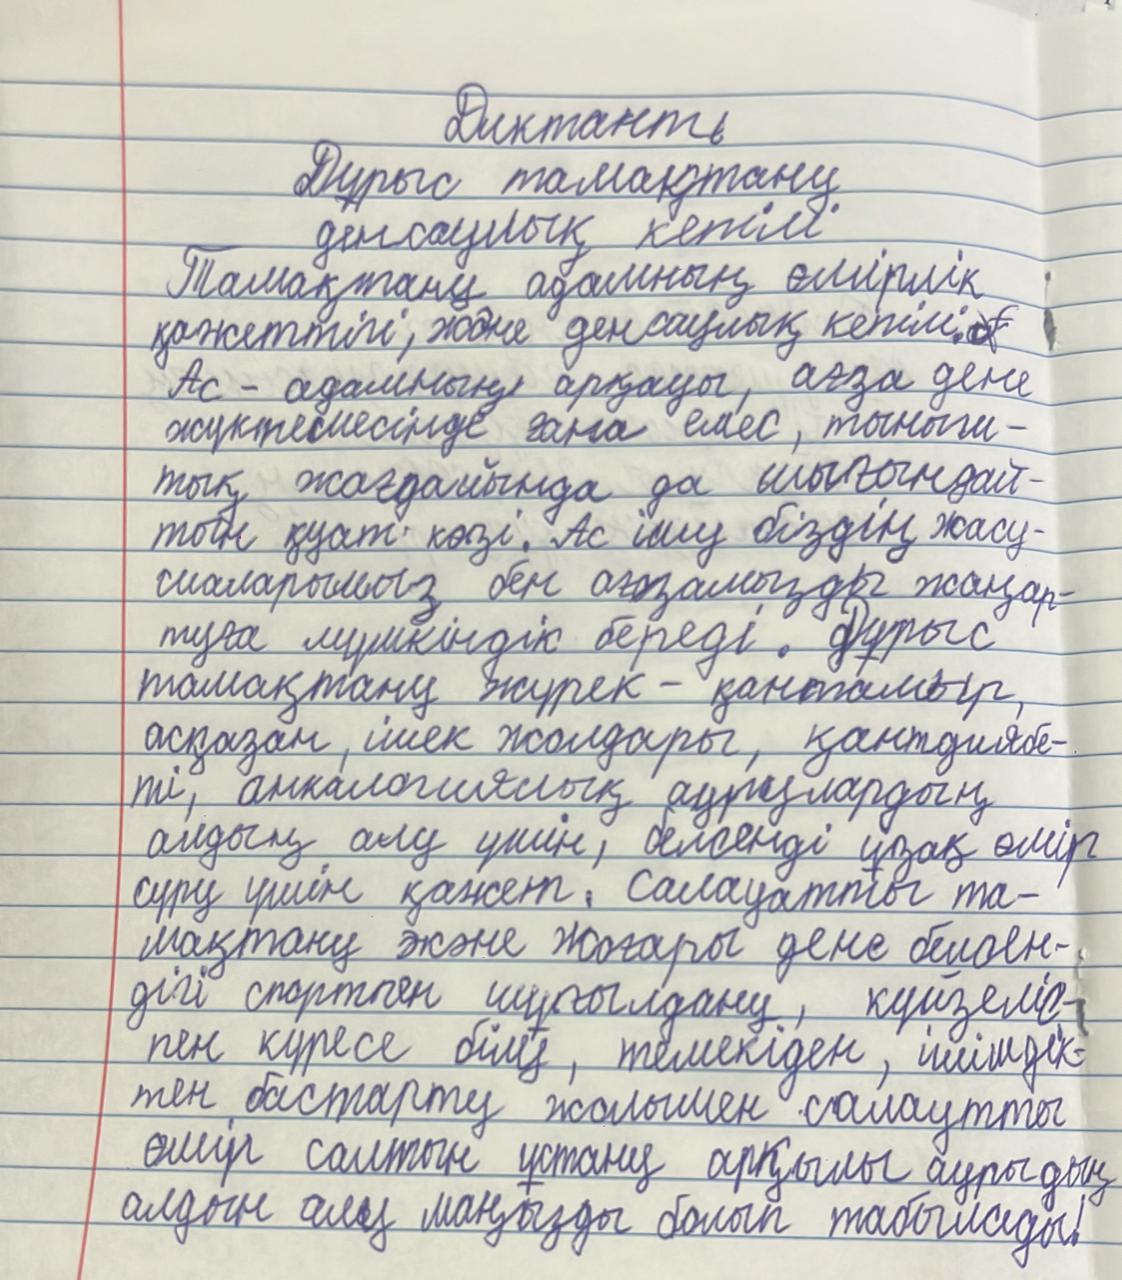 Диктанть
Дұрыс тамақтану
денсаулық кепілі
Тамақтану адамның өмірлік
қажеттігі, және денсаулық кепілі.
Ас – адамның арқауы, ағза дене
жүктемесінде ғана емес, тыныш-
тық жағдайында да шығындай-
тын қуат көзі. Ас ішу біздің жасу-
шаларымыз бен ағзамызды жаңар-
туға мүмкіндік береді. Дұрыс
тамақтану жүрек – қантамыр,
асқазан, ішек жолдары, қантдиябе-
ті, анкалогиялық аурулардың
алдың алу үшін, белсенді ұзақ өмір
сүру үшін қажет. Салауатты та-
мақтану және жоғары дене белсен-
дігі спортпен шұғылдану, күйзеліс-
пен күресе білу, темекіден, ішімдік-
тен бастарту жолымен салаутты
өмір салтын ұстану арқылы аурыдың
алдын алу маңызды болып табылады!